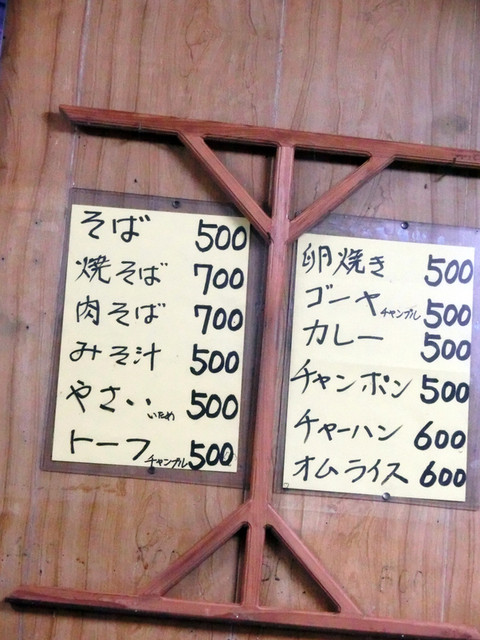 そば 500
焼そば 700
肉そば 700
みそ汁 500
やさいいため 500
トーフチャンプル 500
卵焼き 500
ゴーヤチャンプル 500
カレー 500
チャンポン 500
チャーハン 600
オムライス 600